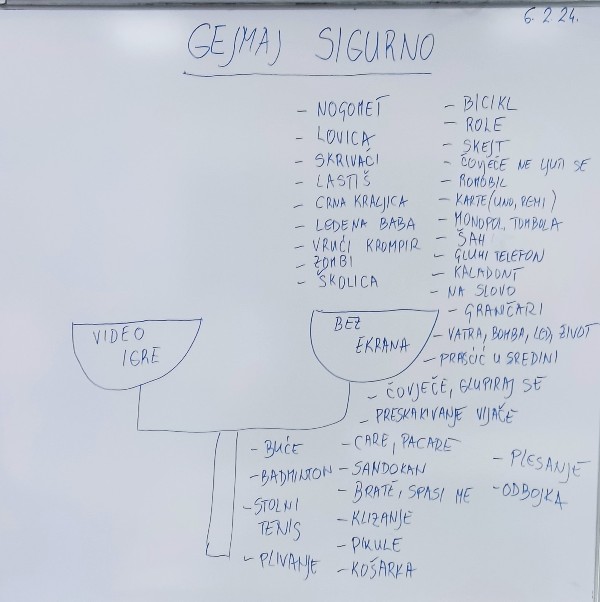 6. 2. 24.
GEJMAJ SIGURNO
- NOGOMET
- LOVICA
- SKRIVAČI
- LASTIŠ
- CRNA KRALJICA
- LEDENA BABA
- VRUĆI KROMPIR
- ZOMBI
- ŠKOLICA
- BICIKL
- ROLE
- SKEJT
- ČOVJEČE NE LJUTI SE
- ROMOBIL
- KARTE (UNO, REMI)
- MONOPOL, TOMBOLA
- ŠAH
- GLUHI TELEFON
- KALADONT
- NA SLOVO
- GRANIČARI
- VATRA, BOMBA, LED, ŽIVOT
- PRAŠČIĆ U SREDINI
- ČOVJEČE, GLUPIRAJ SE
- PRESKAKIVANJE VIJAČE
VIDEO
IGRE
BEZ
EKRANA
- BUĆE
- BADMINTON
- STOLNI
TENIS
- PLIVANJE
- CARE, PACARE
- SANDOKAN
- BRATE, SPASI ME
- KLIZANJE
- PIKULE
- KOŠARKA
- PLESANJE
- ODBOJKA